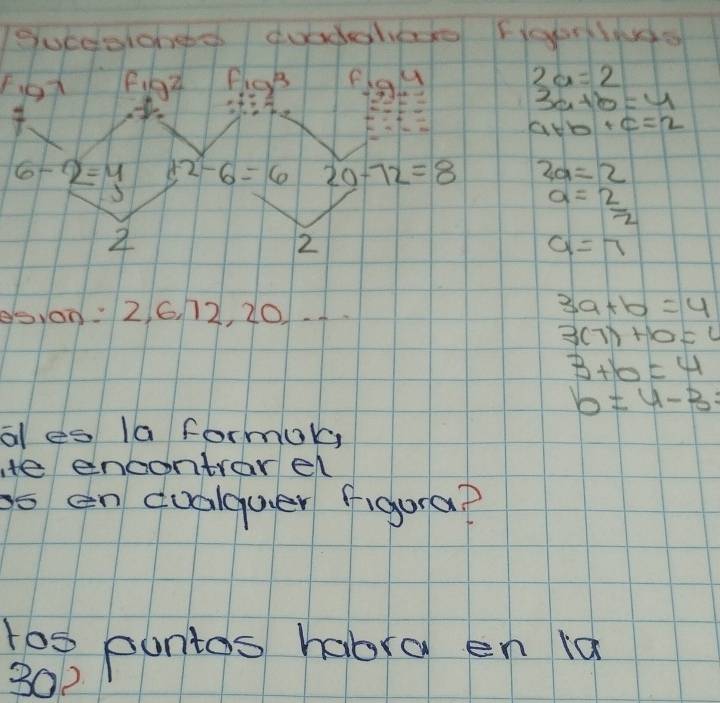 Sucesiones cuadraticas Figurativas
Fig1 Fig2 Fig3 Fig4
6-2=4 12-6=6 20-12=8
2 2
2a=2
3a+b=4
a+b+c=2
2a=2
a=2/2
a=1
esion: 2,6,12,20,...
3a+b=4
3(1)+b=4
3+b=4
b=4-3=
ál es la formula
ite encontrar el
os en cualquier figura?
tos puntos habra en la
30?